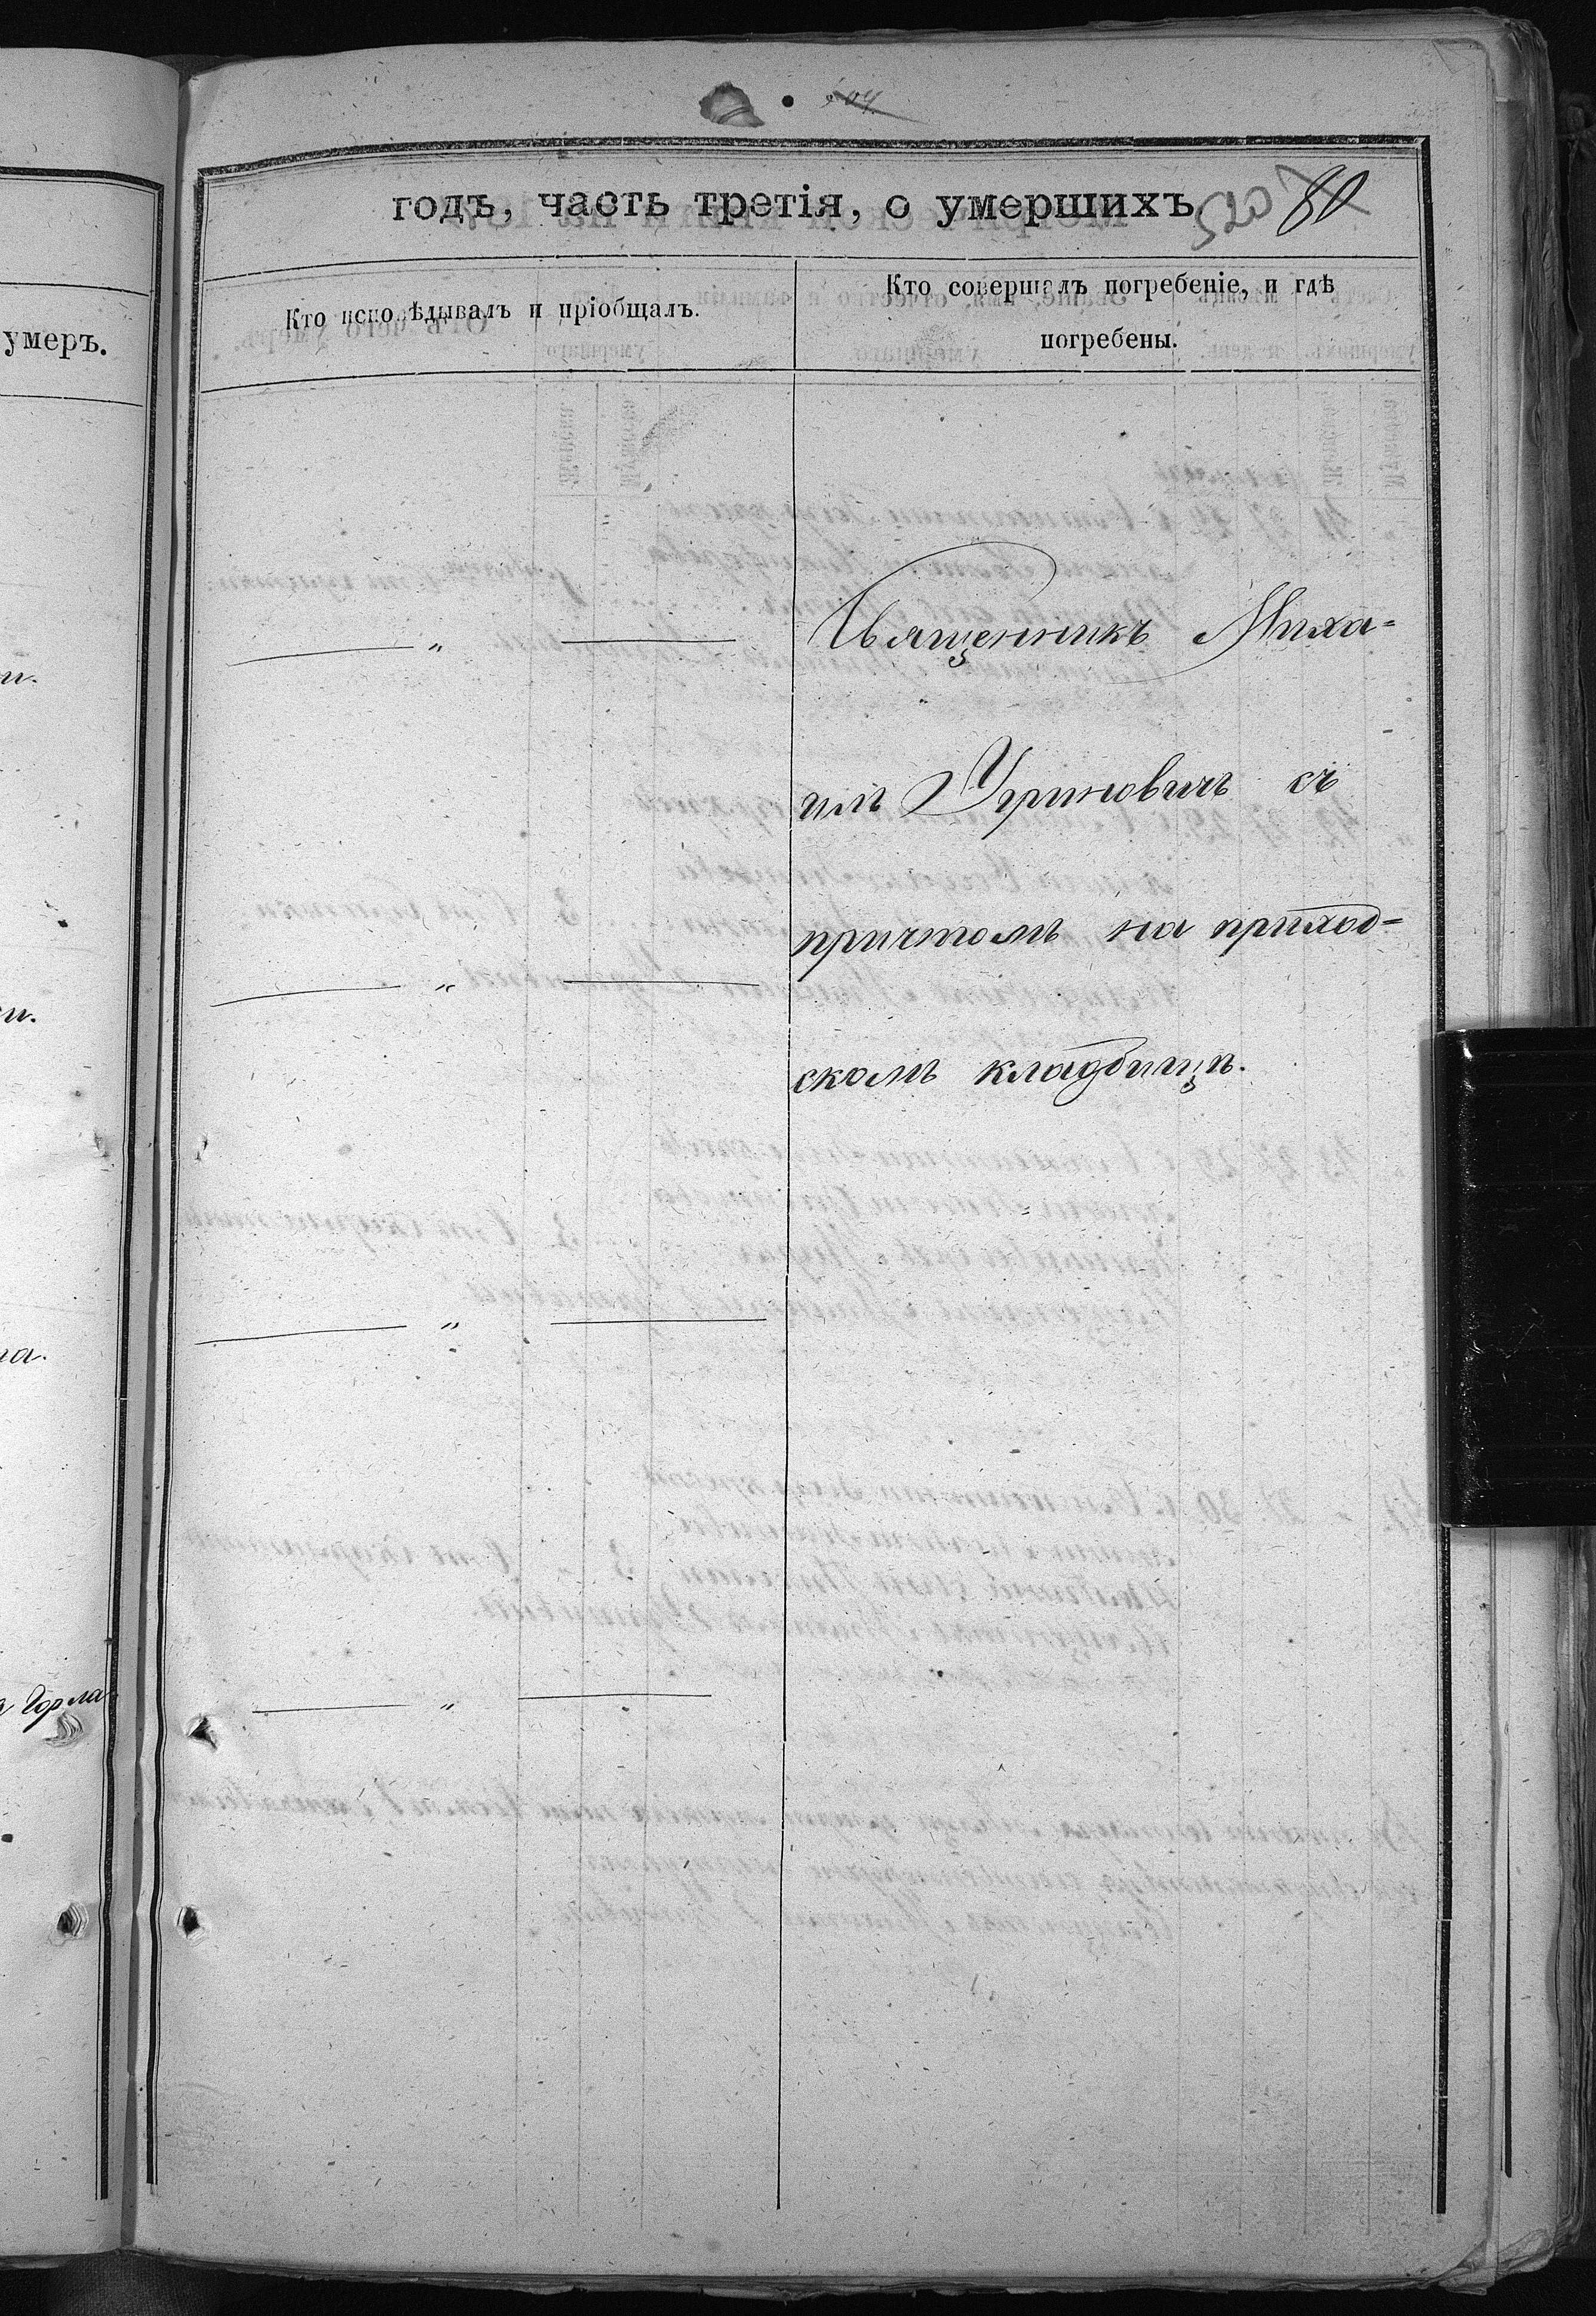 504
годъ, часть третія, о умершихъ
80
Кто исповѣдывалъ и пріобщалъ.
Кто совершалъ погребеніе, и гдѣ
погребены.
умеръ.
Священникъ Миха=
илъ Угриновичъ съ
причтомъ на приход=
скомъ кладбищѣ.